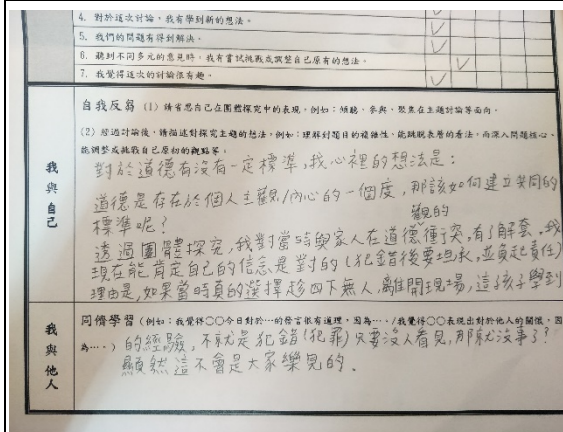 4. 對於這次討論，我有學到新的想法。
5. 我們的問題有得到解決。
6. 聽到不同多元的意見時，我有嘗試挑戰或調整自己原有的想法。
7. 我覺得這次的討論很有趣。
我與自己
自我反芻 (1) 請省思自己在團體探究中的表現，例如：傾聽、參與、聚焦在主題討論等面向。
(2) 經過討論後，請描述對探究主題的想法，例如：理解到題目的複雜性、能跳脫表層的看法，而深入問題核心、
能調整或挑戰自己原初的觀點等。
對於道德有沒有一定標準，我心裡的想法是：
道德是存在於個人主觀/內心的一個度，那該如何建立共同的
標準呢？
觀的
透過團體探究，我對當時與家人在道德衝突，有了解套，我
現在能肯定自己的信念是對的(犯錯後要坦承，並負起責任)
理由是，如果當時真的選擇趁四下無人，離開現場，這孩子學到
我與他人
同儕學習 (例如：我覺得○○今日對於…的發言很有道理，因為…。/我覺得○○表現出對於他人的關懷，因
為…。)
的經驗，不就是犯錯(犯罪)只要沒人看見，那就沒事了？
顯然這不會是大家樂見的。